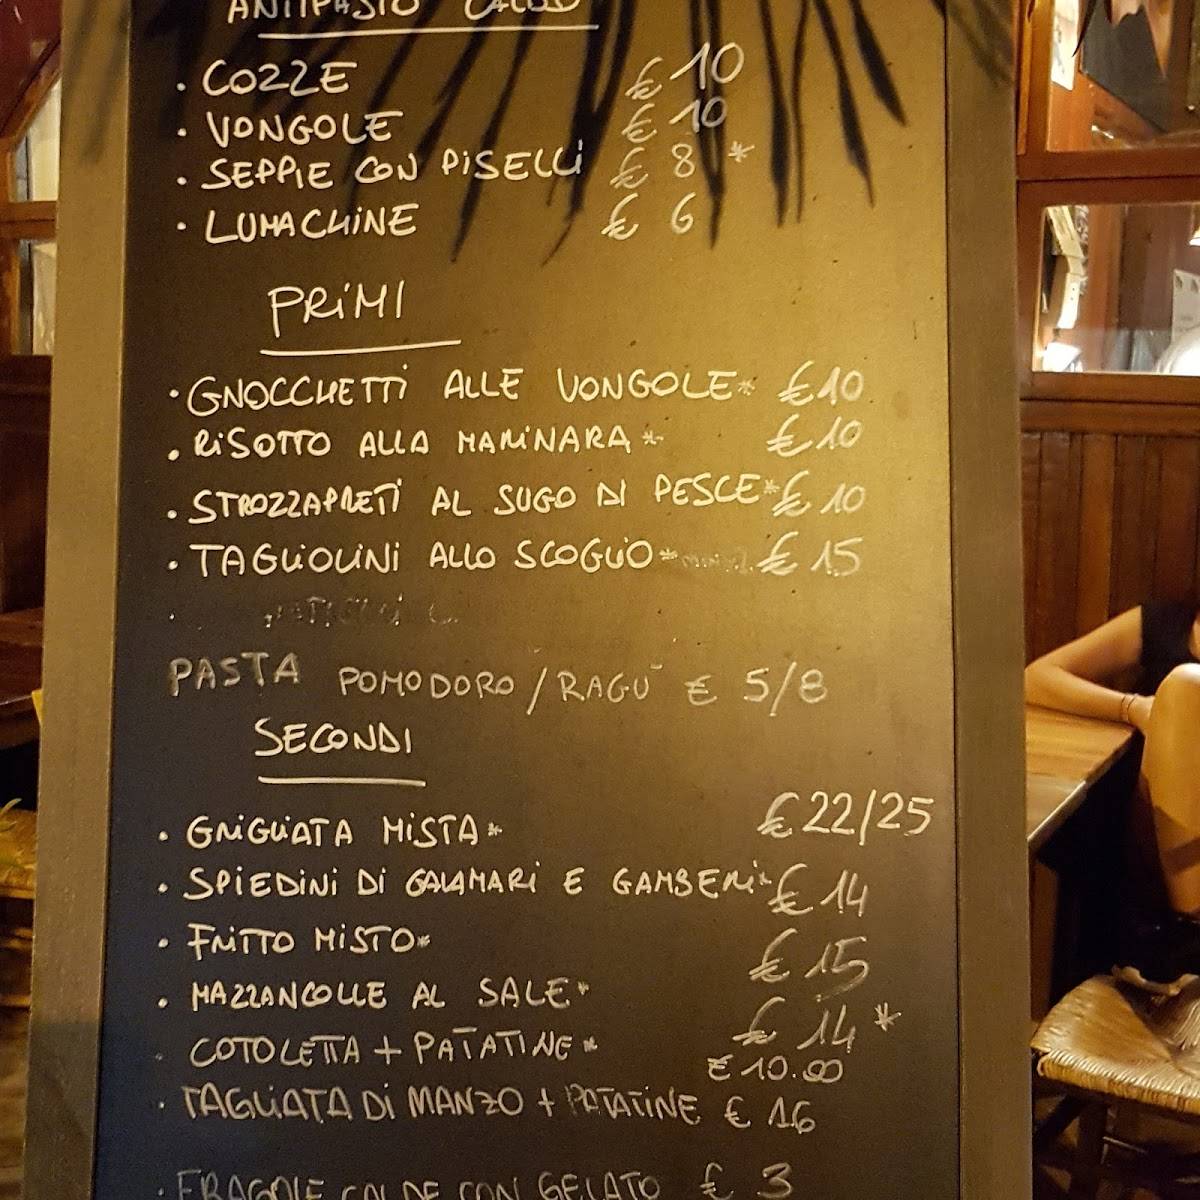 ANTIPASTO CALDO
· COZZE € 10
· VONGOLE € 10
· SEPPIE CON PISELLI € 8 *
· LUMACHINE € 6
PRIMI
· GNOCCHETTI ALLE VONGOLE* €10
· RISOTTO ALLA MARINARA* €10
· STROZZAPRETI AL SUGO DI PESCE* € 10
· TAGLIOLINI ALLO SCOGLIO* € 15
PASTA POMODORO/RAGÙ € 5/8
SECONDI
· GRIGLIATA MISTA* €22/25
· SPIEDINI DI CALAMARI E GAMBERI* € 14
· FRITTO MISTO* € 15
· MAZZANCOLLE AL SALE* € 14 *
· COTOLETTA + PATATINE* € 10.00
· TAGLIATA DI MANZO + PATATINE € 16
· FRAGOLE CALDE CON GELATO € 3